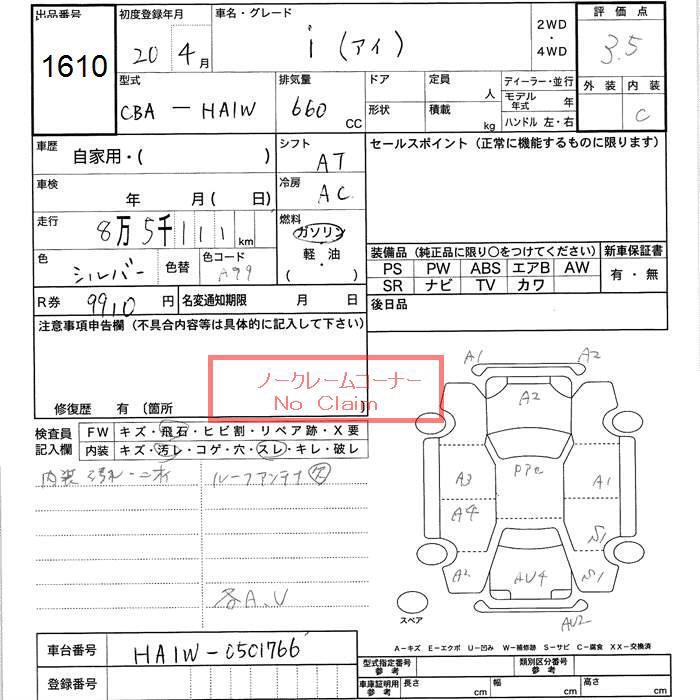 出品番号 初度登録年月 車名・グレード 2WD・4WD 評価点
1610 20 4月 i (アイ) 3.5
型式 排気量 ドア 定員 人 ディーラー・並行 外装 内装
CBA - HA1W 660 CC 形状 積載 kg モデル年式 年 C
ハンドル 左・右
車歴 自家用・( ) シフト AT セールスポイント(正常に機能するものに限ります)
車検 年 月( 日) 冷房 AC
走行 8万5千111km 燃料 ガソリン
軽・油
( ・ )
色 シルバー 色替 色コード A99
装備品(純正品に限り○をつけてください) 新車保証書
PS PW ABS エアB AW 有・無
SR ナビ TV カワ
R券 9910円 名変通知期限 月 日 後日品
注意事項申告欄(不具合内容等は具体的に記入して下さい)
ノークレームコーナー
No Claim
修復歴 有 〔箇所 〕
検査員記入欄 FW キズ・飛石・ヒビ割・リペア跡・X要
内装 キズ・汚レ・コゲ・穴・スレ・キレ・破レ
内装 汚れ・ニオイ ルーフアンテナ欠
各A、U
A1 A2
A2
A3 A1
A4
S1
A2 S1
AU4
AU2
スペア
A-キズ E-エクボ U-凹み W-補修跡 S-サビ C-腐食 XX-交換済
車台番号 HA1W-0501766
登録番号
型式指定番号 参考 類別区分番号 参考
車庫証明用 参考 長さ cm 幅 cm 高さ cm